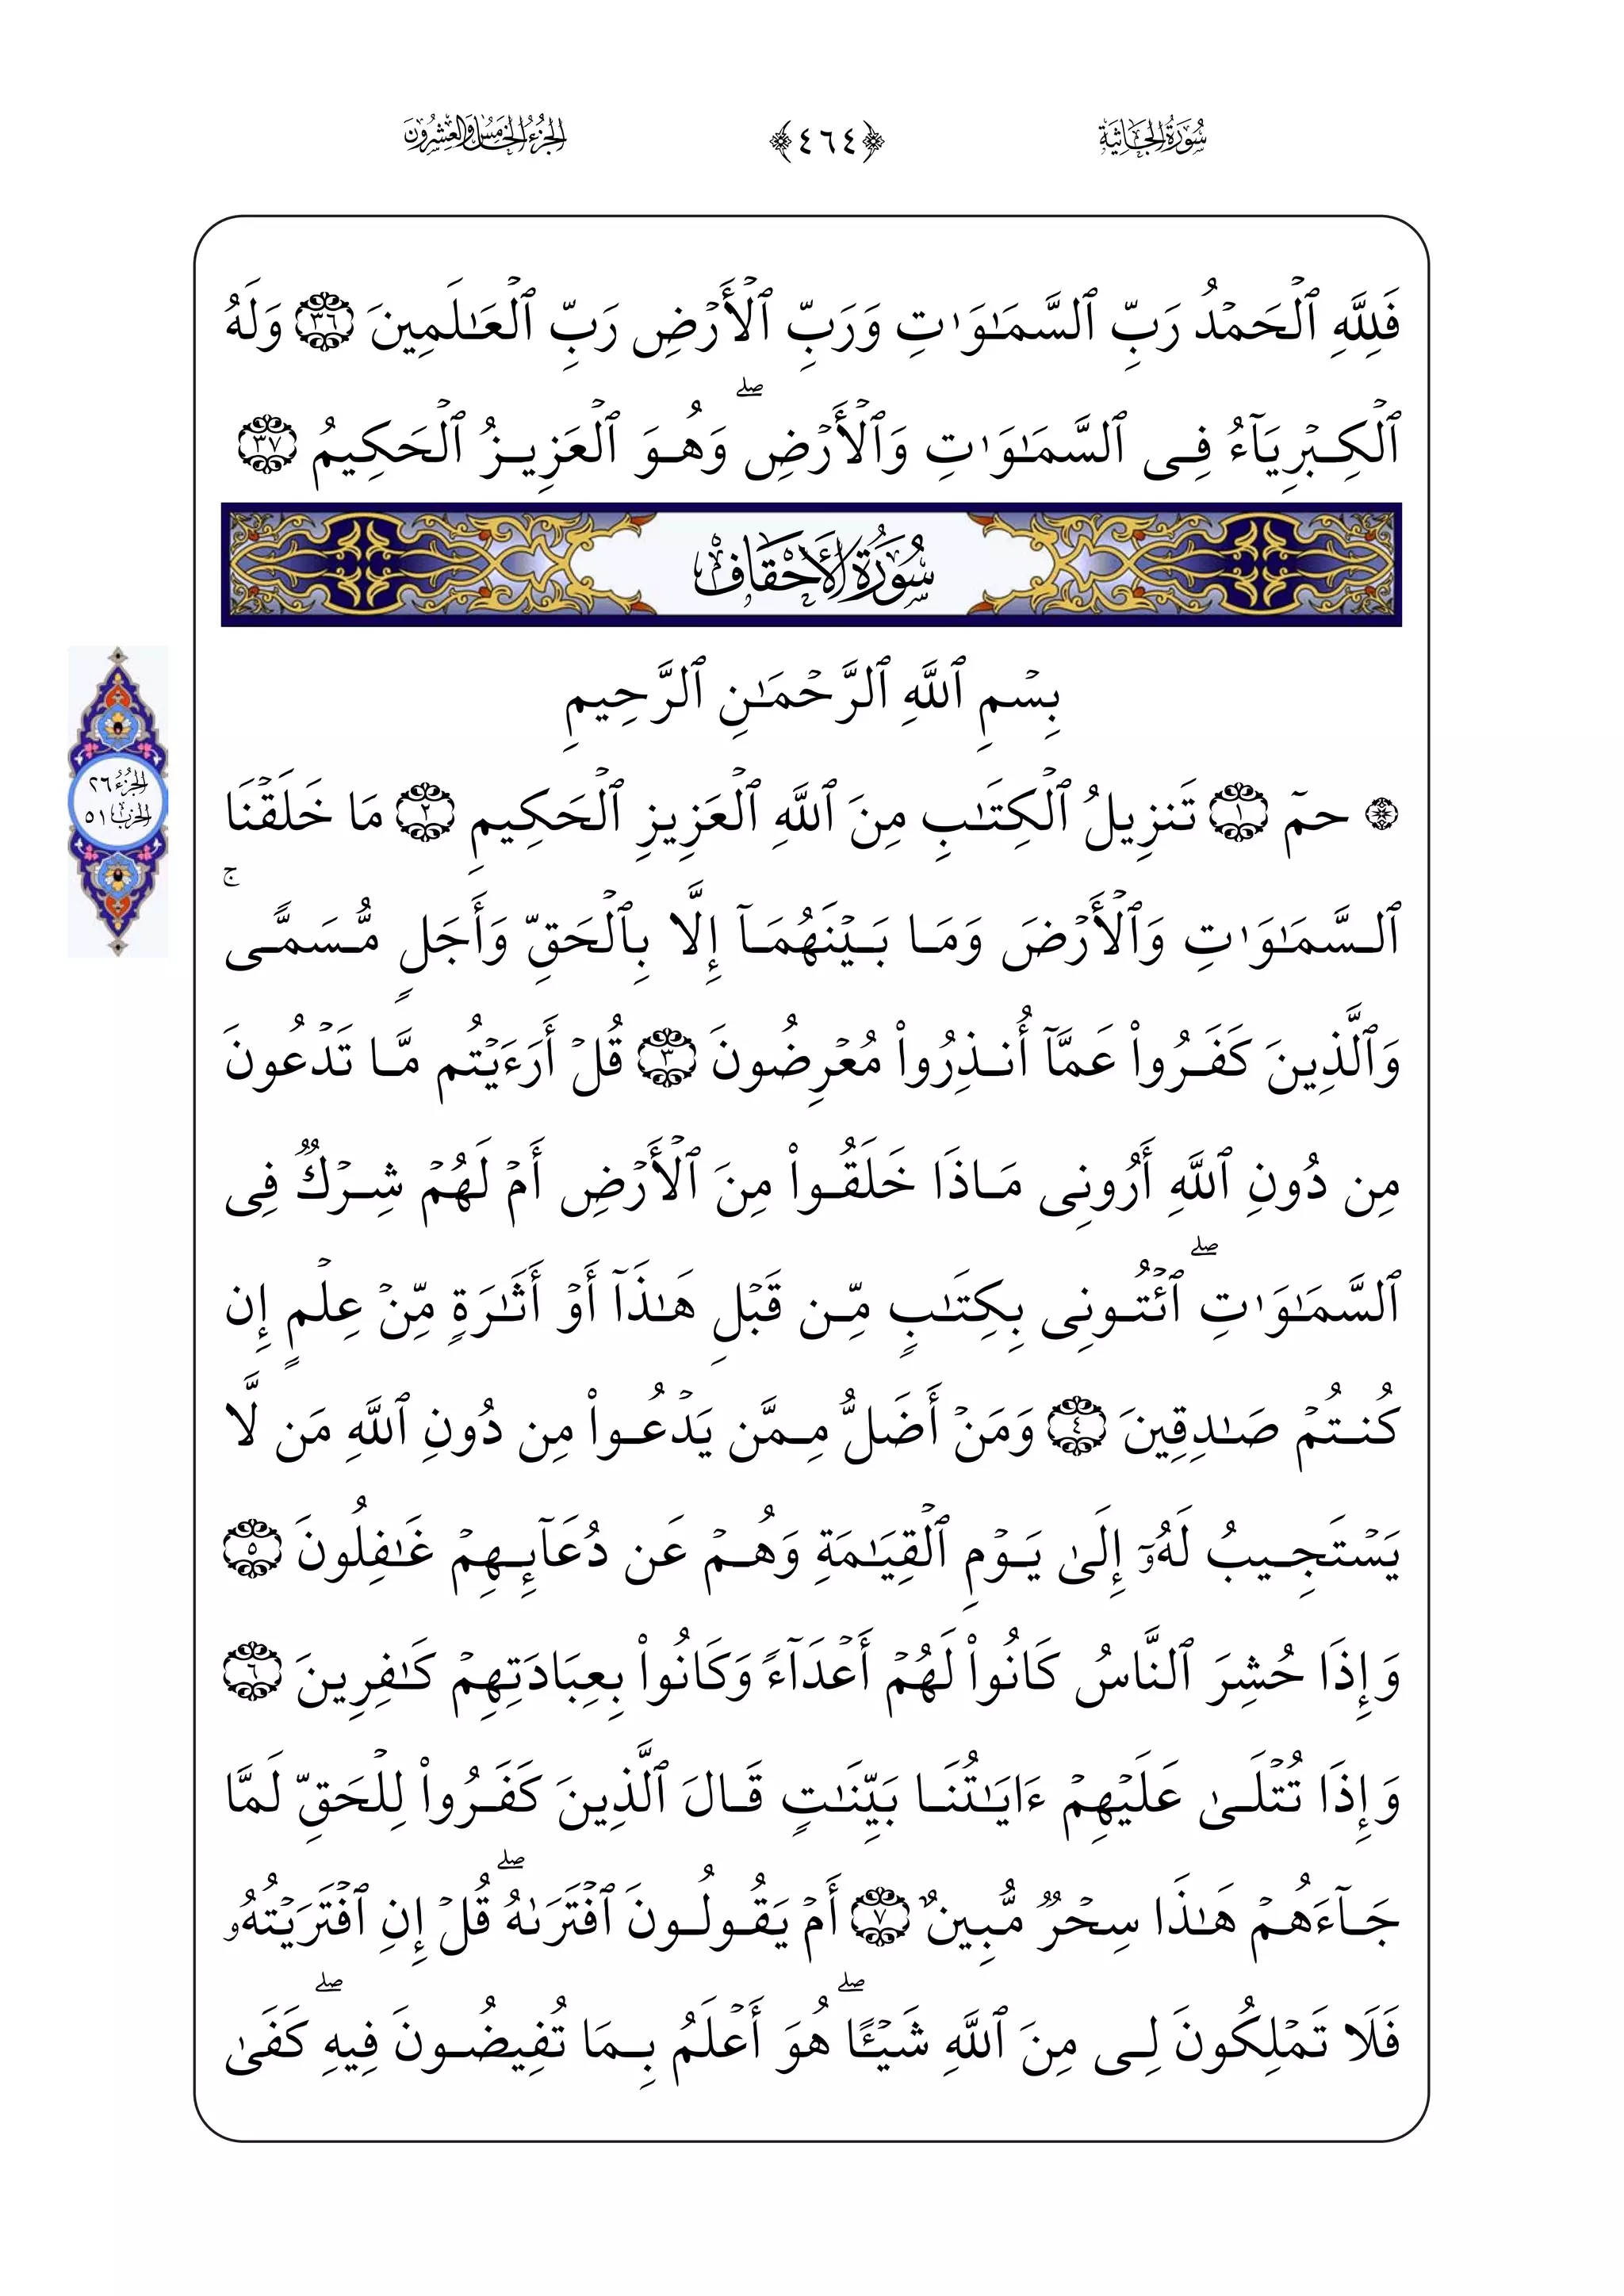 سُورَةُ الجَاثِيَةِ ﴿٤٦٤﴾ الجُزْءُ الخَامِسُ وَالعِشْرُونَ
فَلِلَّهِ ٱلۡحَمۡدُ رَبِّ ٱلسَّمَٰوَٰتِ وَرَبِّ ٱلۡأَرۡضِ رَبِّ ٱلۡعَٰلَمِينَ ٣٦ وَلَهُ
ٱلۡكِبۡرِيَآءُ فِى ٱلسَّمَٰوَٰتِ وَٱلۡأَرۡضِۖ وَهُوَ ٱلۡعَزِيزُ ٱلۡحَكِيمُ ٣٧
سُورَةُ الأَحْقَافِ
بِسۡمِ ٱللَّهِ ٱلرَّحۡمَٰنِ ٱلرَّحِيمِ
الجُزْءُ ٢٦
الحِزْبُ ٥١
۞ حمٓ ١ تَنزِيلُ ٱلۡكِتَٰبِ مِنَ ٱللَّهِ ٱلۡعَزِيزِ ٱلۡحَكِيمِ ٢ مَا خَلَقۡنَا
ٱلسَّمَٰوَٰتِ وَٱلۡأَرۡضَ وَمَا بَيۡنَهُمَآ إِلَّا بِٱلۡحَقِّ وَأَجَلٍ مُّسَمًّىۚ
وَٱلَّذِينَ كَفَرُواْ عَمَّآ أُنذِرُواْ مُعۡرِضُونَ ٣ قُلۡ أَرَءَيۡتُم مَّا تَدۡعُونَ
مِن دُونِ ٱللَّهِ أَرُونِى مَاذَا خَلَقُواْ مِنَ ٱلۡأَرۡضِ أَمۡ لَهُمۡ شِرۡكٌ فِى
ٱلسَّمَٰوَٰتِۖ ٱئۡتُونِى بِكِتَٰبٍ مِّن قَبۡلِ هَٰذَآ أَوۡ أَثَٰرَةٍ مِّنۡ عِلۡمٍ إِن
كُنتُمۡ صَٰدِقِينَ ٤ وَمَنۡ أَضَلُّ مِمَّن يَدۡعُواْ مِن دُونِ ٱللَّهِ مَن لَّا
يَسۡتَجِيبُ لَهُۥٓ إِلَىٰ يَوۡمِ ٱلۡقِيَٰمَةِ وَهُمۡ عَن دُعَآئِهِمۡ غَٰفِلُونَ ٥
وَإِذَا حُشِرَ ٱلنَّاسُ كَانُواْ لَهُمۡ أَعۡدَآءً وَكَانُواْ بِعِبَادَتِهِمۡ كَٰفِرِينَ ٦
وَإِذَا تُتۡلَىٰ عَلَيۡهِمۡ ءَايَٰتُنَا بَيِّنَٰتٍ قَالَ ٱلَّذِينَ كَفَرُواْ لِلۡحَقِّ لَمَّا
جَآءَهُمۡ هَٰذَا سِحۡرٌ مُّبِينٌ ٧ أَمۡ يَقُولُونَ ٱفۡتَرَىٰهُۖ قُلۡ إِنِ ٱفۡتَرَيۡتُهُۥ
فَلَا تَمۡلِكُونَ لِى مِنَ ٱللَّهِ شَيۡـًٔاۖ هُوَ أَعۡلَمُ بِمَا تُفِيضُونَ فِيهِۖ كَفَىٰ